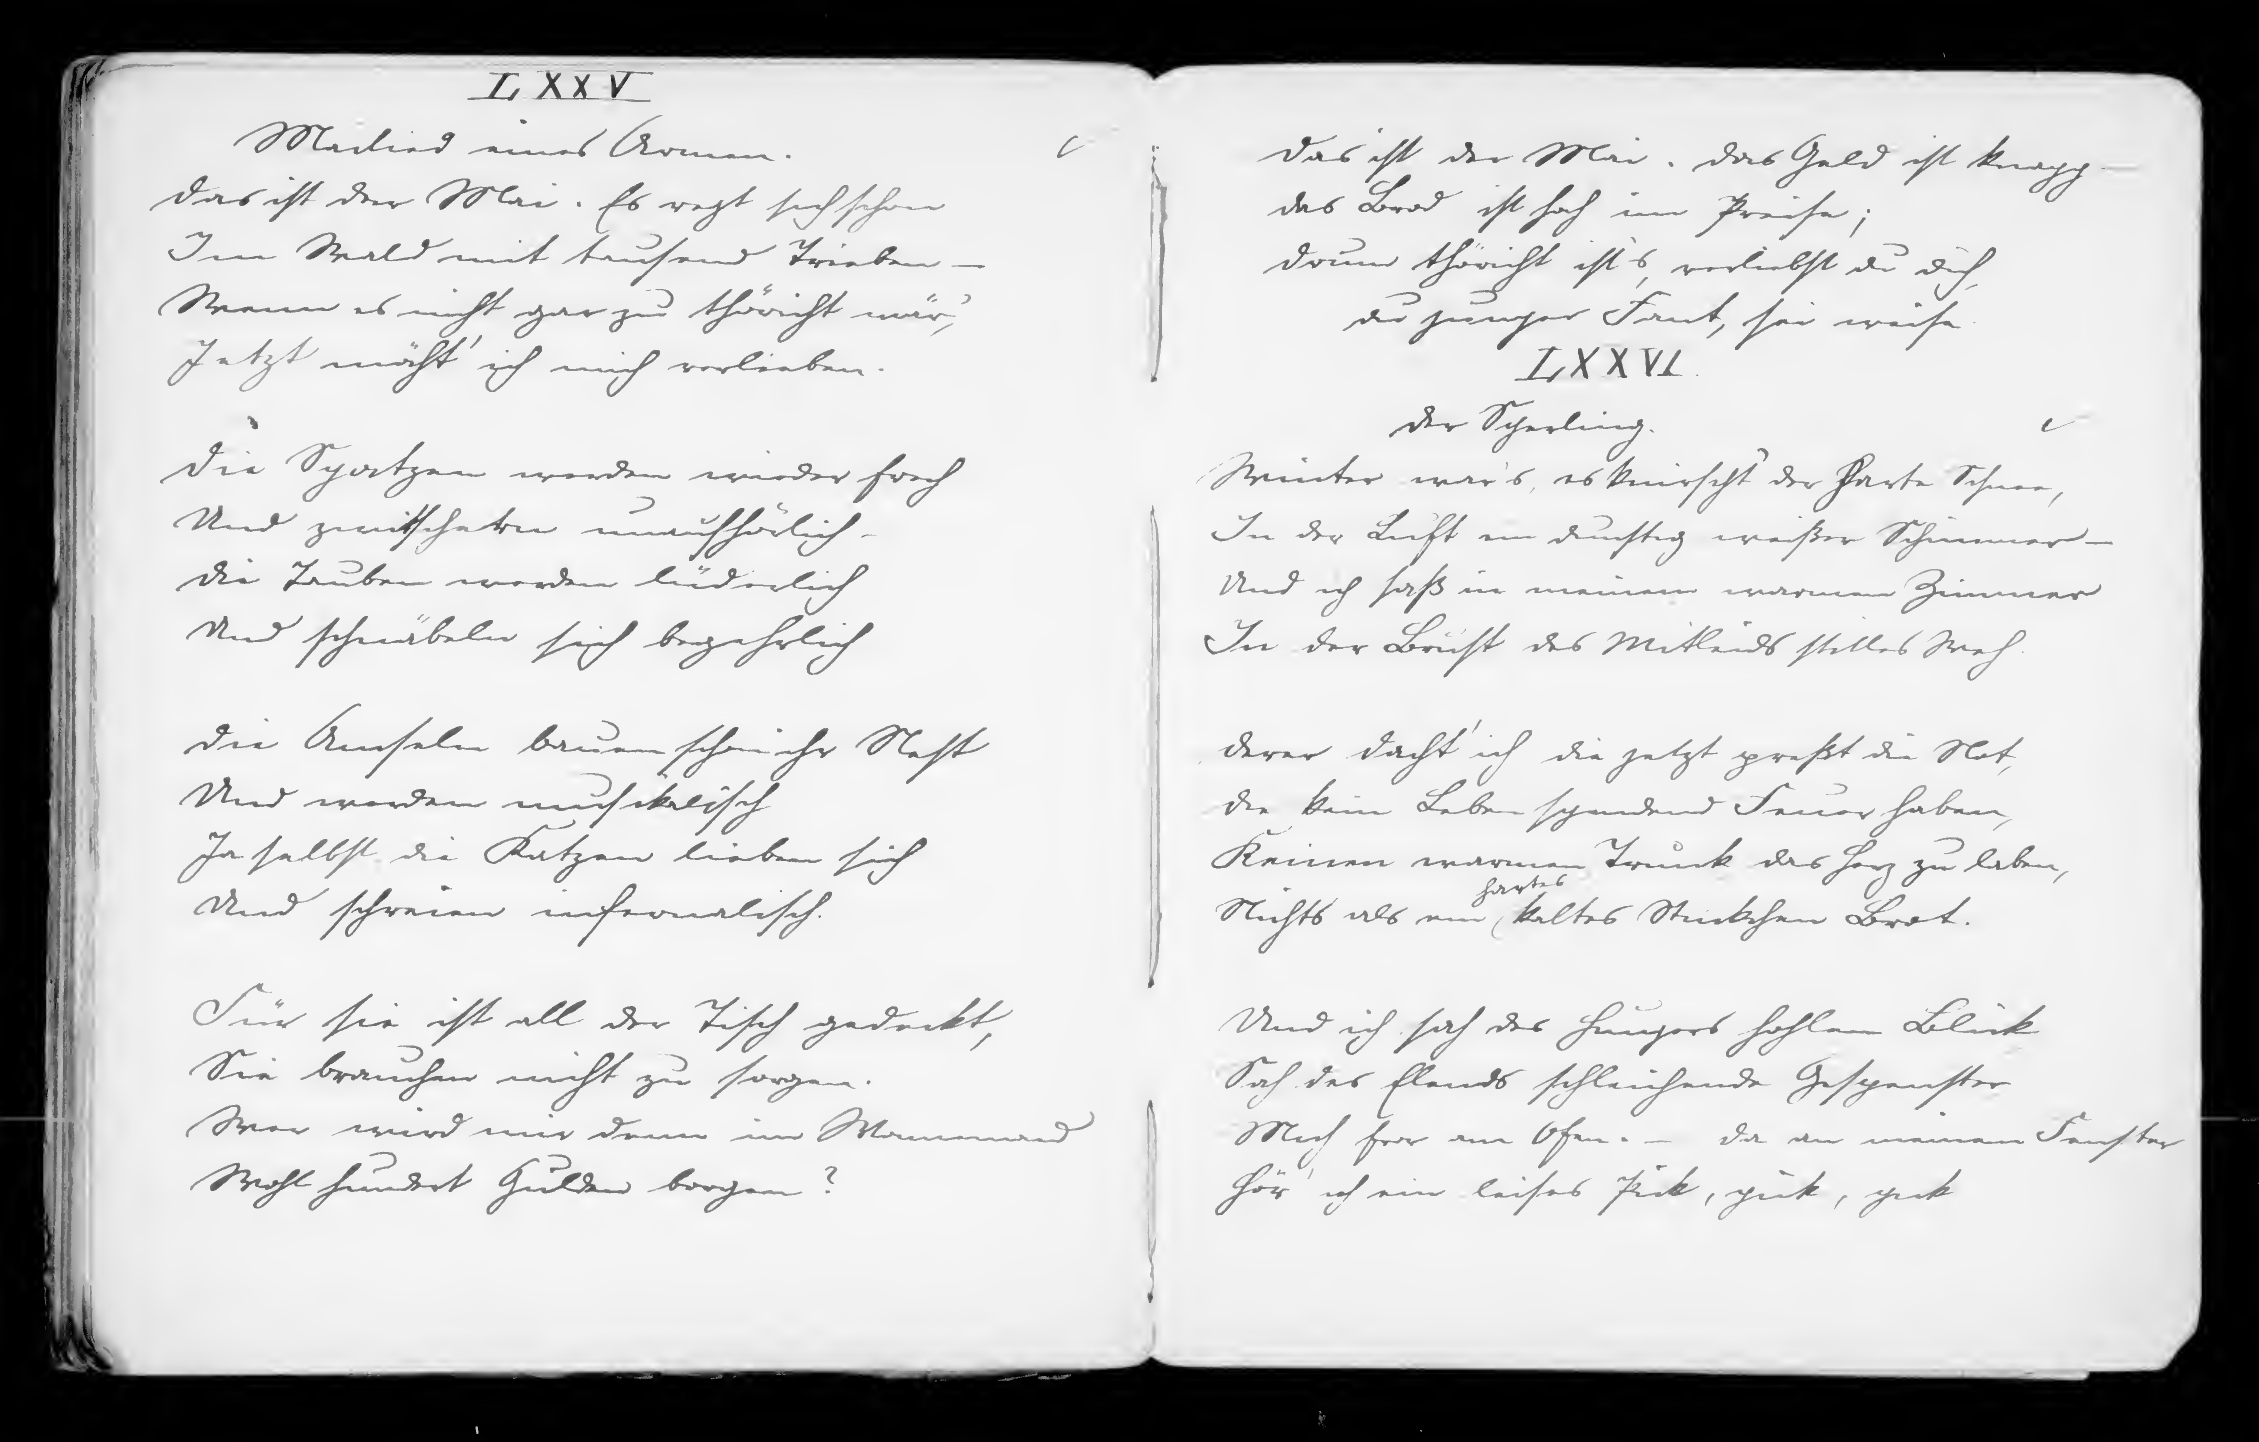 LXXV
Mailied eines Armen.
Das ist der Mai. Es regt sich schon
Im Wald mit tausend Trieben –
Wenn es nicht gar zu thöricht wär',
Jetzt möcht' ich mich verlieben.
Die Spatzen werden wieder frech
Und zwitschern unaufhörlich –
Die Tauben werden lüderlich
Und schnäbeln sich begehrlich
Die Amseln bauen schon ihr Nest
Und werden musikalisch
Ja selbst die Katzen lieben sich
Und schreien infernalisch.
Für sie ist all der Tisch gedeckt,
Sie brauchen nicht zu sorgen.
Wer wird mir denn im Wonnemond
Wohl hundert Gulden borgen?
Das ist der Mai. Das Geld ist knapp –
Das Brod ist hoch im Preise;
Drum thöricht ist's, verliebst du dich,
Du junger Fant, sei weise.
LXXVI.
Der Sperling.
Winter war's, es knirscht' der harte Schnee,
In der Luft ein dunstig weißer Schimmer –
Und ich saß in meinem warmen Zimmer
In der Brust des Mitleids stilles Weh.
Derer dacht' ich die jetzt preßt die Not,
Die kein Leben spendend Feuer haben,
Keinen warmen Trunk das Herz zu laben,
hartes
Nichts als ein kaltes Stückchen Brot.
Und ich sah des Hungers hohlen Blick
Sah des Elends schleichende Gespenster
Mich fror am Ofen. – Da an meinem Fenster
Hör' ich ein leises Pick, pick, pick